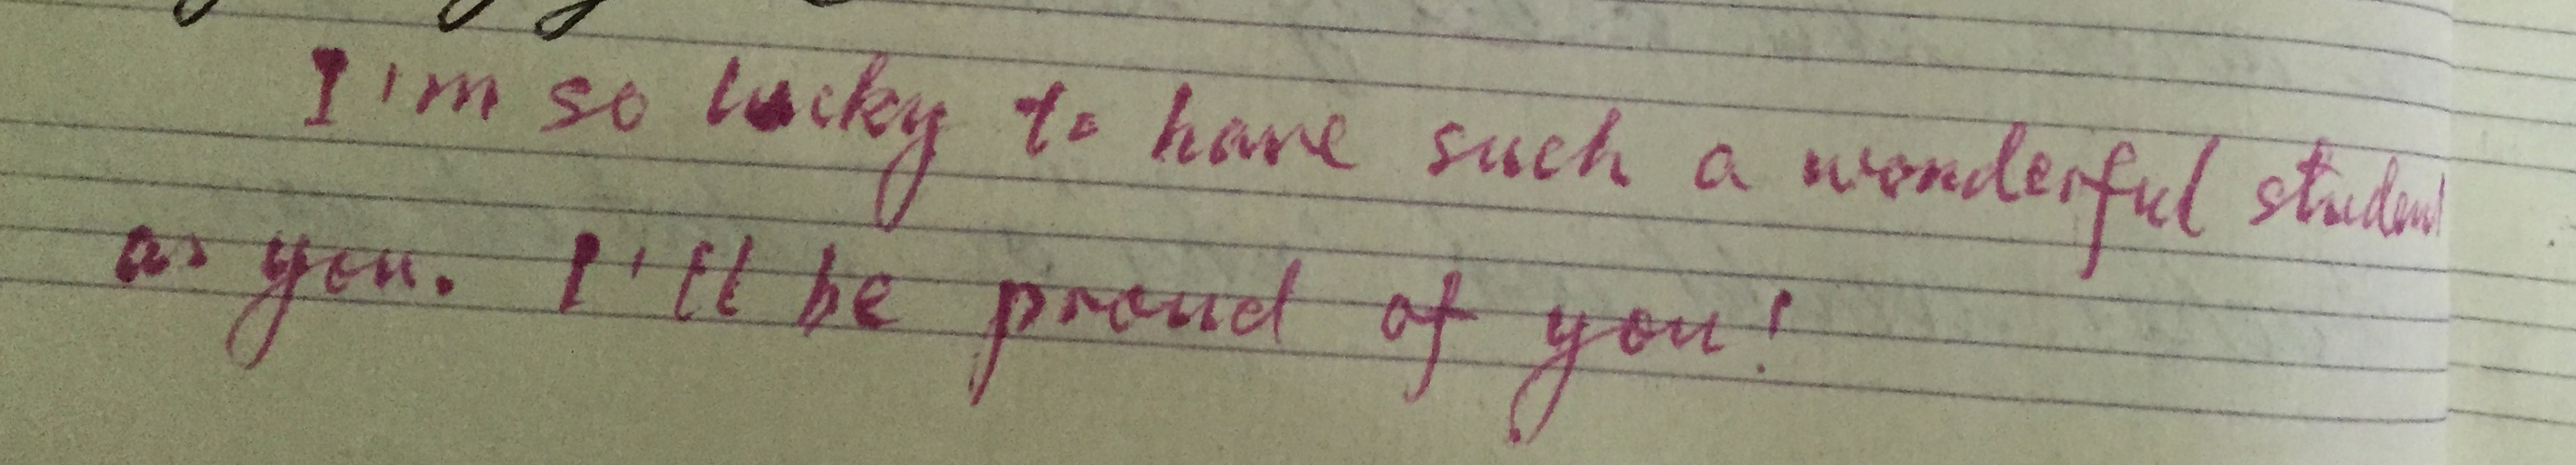 I'm so lucky to have such a wonderful student
as you. I'll be proud of you!